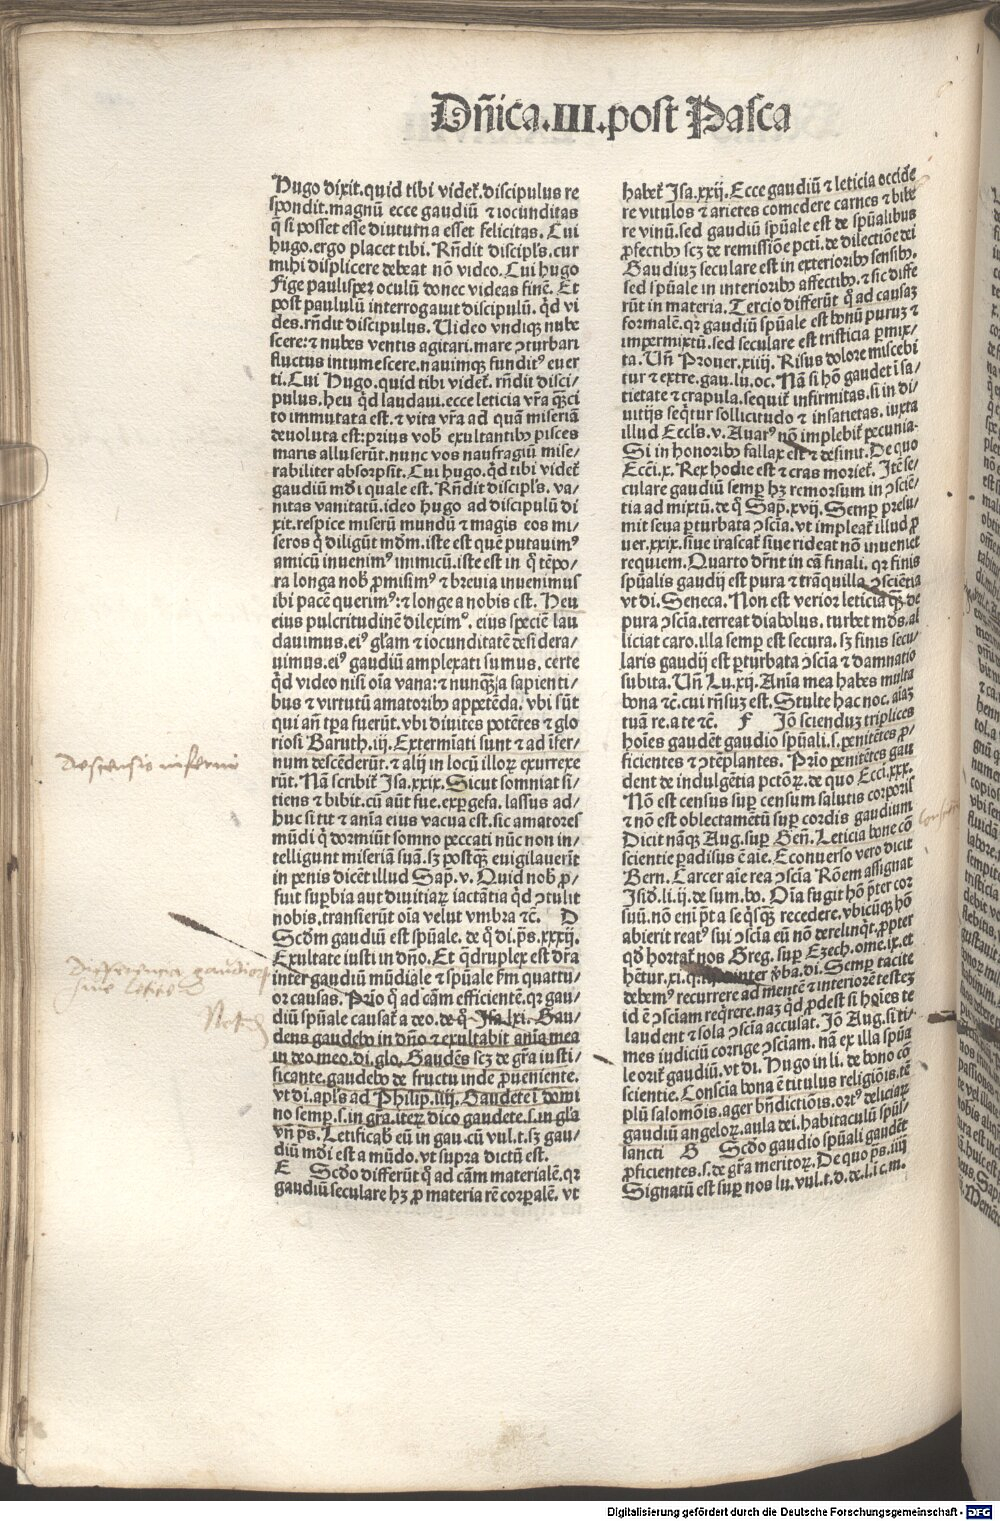 Dñica.III.post Pasca
Hugo dixit.quid tibi videt̉.discipulus re
spondit.magnū ecce gaudiū ⁊ iocunditas
q̄ si posset esse diuturna esset felicitas. Cui
hugo.ergo placet tibi. Rñdit discipl's.cur
mihi displicere debeat nō video. Cui hugo
Fige paulisper oculū donec videas finē. Et
post paululū interrogauit discipulū. qd̓ vi
des.rñdit discipulus. Video vndiqꝫ nube
scere:⁊ nubes ventis agitari.mare ↄturbari
fluctus intumescere.nauimqꝫ fundit᷒ euer
ti. Cui Hugo.quid tibi videt̉. rñdit disci/
pulus.heu qd̓ laudaui.ecce leticia vr̄a qꝫci
to immutata est.⁊ vita vr̄a ad quā miseriā
deuoluta est:prius vob̓ exultantibꝰ pisces
maris alluserūt.nunc vos naufragiū mise/
rabiliter absorpsit. Cui hugo.qd̓ tibi videt̉
gaudiū mūdi quale est. Rñdit discipl's. va/
nitas vanitatū.ideo hugo ad discipulū di
xit.respice miserū mundū ⁊ magis eos mi/
seros q̇ diligūt mūdm.iste est quē putauim᷒
amicū inuenim᷒ inimicū.iste est in q̊ tēpo/
ra longa nob̓ ꝓmisim᷒ ⁊ breuia inuenimus
ibi pacē querim᷒:⁊ longe a nobis est. Heu
eius pulcritudinē dilexim᷒. eius speciē lau
dauimus.ei᷒ gl'am ⁊ iocunditatē desidera/
uimus.ei᷒ gaudiū amplexati sumus. certe
qd̓ video nisi oīa vana:⁊ nunqꝫ a sapienti/
bus ⁊ virtutū amatoribꝰ appetēda. vbi sūt
qui añ tp̄a fuerūt.vbi diuites potētes ⁊ glo
riosi Baruth.iij. Extermīati sunt ⁊ ad īfer/
num descēderūt.⁊ alij in locū illoꝝ exurrexe
rūt. Nā scribit̉ Isa.xxix. Sicut somniat si/
tiens ⁊ bibit.cū aūt fue.exꝑgefa. lassus ad/
huc sitit ⁊ anīa eius vacua est.sic amatores
mūdi q̇ dormiūt somno peccati nūc non in/
telligunt miseriā suā.sꝫ postqꝫ euigilauerīt
in penis dicēt illud Sap̄.v. Quid nob̓ ꝓ/
fuit supbia aut diuitiaꝝ iactātia qd̓ ↄtulit
nobis.transierūt oīa velut vmbra ⁊c.    D
Scd̓m gaudiū est spūale. de q̊ di.ps̄.xxxij.
Exultate iusti in dn̄o. Et qd̓ruplex est dr̄a
inter gaudiū mūdiale ⁊ spūale ẜm quattu/
or causas. Prīo q̊ ad cām efficientē.qꝛ gau/
diū spūale causat̉ a deo.de q̊ Isa.lxi. Gau/
dens gaudebo in dn̄o ⁊ exultabit anīa mea
in deo.meo.di.glo. Gaudēs scꝫ de gr̄a iusti/
ficante.gaudebo de fructu inde ꝓueniente.
vt di.apl's ad Philip̄.iiij. Gaudete ī domi
no semp̄.s.in gr̄a.iteꝝ dico gaudete.s.in gl'a
vñ ps̄. Letificab̓ eū in gau.cū vul.t.sꝫ gau/
diū mūdi est a mūdo.vt supra dictū est.
E    Scd̓o differūt q̊ ad cām materialē.qꝛ
gaudiū seculare hꝫ ꝓ materia rē corꝑalē. vt
habet̉ Isa.xxij. Ecce gaudiū ⁊ leticia occide
re vitulos ⁊ arietes comedere carnes ⁊ bibe
re vinū.sed gaudiū spūale est de spūalibus
ꝓfectibꝰ scꝫ de remissiōe pcti.de dilectiōe dei
Gaudiuꝫ seculare est in exterioribꝰ sensibꝰ.
sed spūale in interioribꝰ affectibꝰ.⁊ sic diffe
rūt in materia. Tercio differūt q̊ ad causaꝫ
formalē.qꝛ gaudiū spūale est bonū puruꝫ ⁊
impermixtū.sed seculare est tristicia ꝑmix/
ta. Vñ Prouer.xiiij. Risus dolore miscebi
tur ⁊ extre.gau.lu.oc. Nā si hō gaudet ī sa/
tietate ⁊ crapula.sequit̉ infirmitas.si in di/
uitijs seqt̉ur sollicitudo ⁊ insatietas. iuxta
illud Eccl's.v. Auar᷒ nō implebit̉ pecunia.
Si in honoribꝰ fallax est ⁊ desinit. De quo
Ecci̓.x. Rex hodie est ⁊ cras moriet̉. Itē se/
culare gaudiū semp̄ hꝫ remorsum in ↄsciē/
tia ad mixtū.de q̊ Sap̄.xvij. Semp̄ presu/
mit seua ꝑturbata ↄscīa.vt impleat̉ illud ꝓ
uer.xxix.siue irascat̉ siue rideat nō inueniet
requiem. Quarto dr̄nt in cā finali. qꝛ finis
spūalis gaudij est pura ⁊ trāquilla ↄscientia
vt di. Seneca. Non est verior leticia qꝫ de
pura ↄscīa.terreat diabolus. turbet mūds.al
liciat caro.illa semp̄ est secura. sꝫ finis secu/
laris gaudij est ꝑturbata ↄscīa ⁊ damnatio
subita. Vñ Lu.xij. Anīa mea habes multa
bona ⁊c.cui rñsuꝫ est. Stulte hac noc. aīaꝫ
tuā re.a te ⁊c.    F    Iō scienduꝫ triplices
hoīes gaudēt gaudio spūali.s.penitētes ꝓ/
ficientes ⁊ ↄtēplantes. Prīo penitētes gau
dent de indulgētia pctōꝝ.de quo Ecci̓.xxx.
Nō est census sup̄ censum salutis corporis
⁊ nō est oblectamētū sup̄ cordis gaudium
Dicit nāqꝫ Aug.sup̄ Geñ. Leticia bone cō
scientie ꝑadisus ē aīe. Econuerso vero dicit
Bern. Carcer aīe rea ↄscīa Rōem assignat
Isid̓.li.ij.de sum.bo. Oīa fugit hō p̄ter cor
suū.nō enī pt̄ a se qsqꝫ recedere.vbicūqꝫ hō
abierit reat᷒ sui ↄscīa eū nō derelinqt̉.ꝓpter
qd̓ hortat̉ nos Greg.sup̄ Ezech.ome.ix.et
hētur.xi.q. inter ꝟba.di. Semp̄ tacite
debem᷒ recurrere ad mentē ⁊ interiorē testeꝫ
id ē ↄsciam reqr̄ere.naꝫ qd̓ ꝓdest si hoīes te
laudent ⁊ sola ↄscīa accusat. Iō Aug.si ti/
mes iudiciū corrige ↄsciam. nā ex illa spūa
le orit̉ gaudiū.vt di. Hugo in li. de bono cō
scientie. Conscīa bona ē titulus religiōis.tē
plū salomōis.ager bn̄dictiōis.ort᷒ deliciaꝝ
gaudiū angeloꝝ.aula dei.habitaculū spūs/
sancti    G    Scd̓o gaudio spūali gaudēt
ꝓficientes.s.de gr̄a meritoꝝ. De quo ps̄.iiij
Signatū est sup̄ nos lu.vul.t.d.de.l.i c.m.
descensio inferni
Differencia gaudioꝝ
siue leticie
Nota
Digitalisierung gefördert durch die Deutsche Forschungsgemeinschaft - DFG